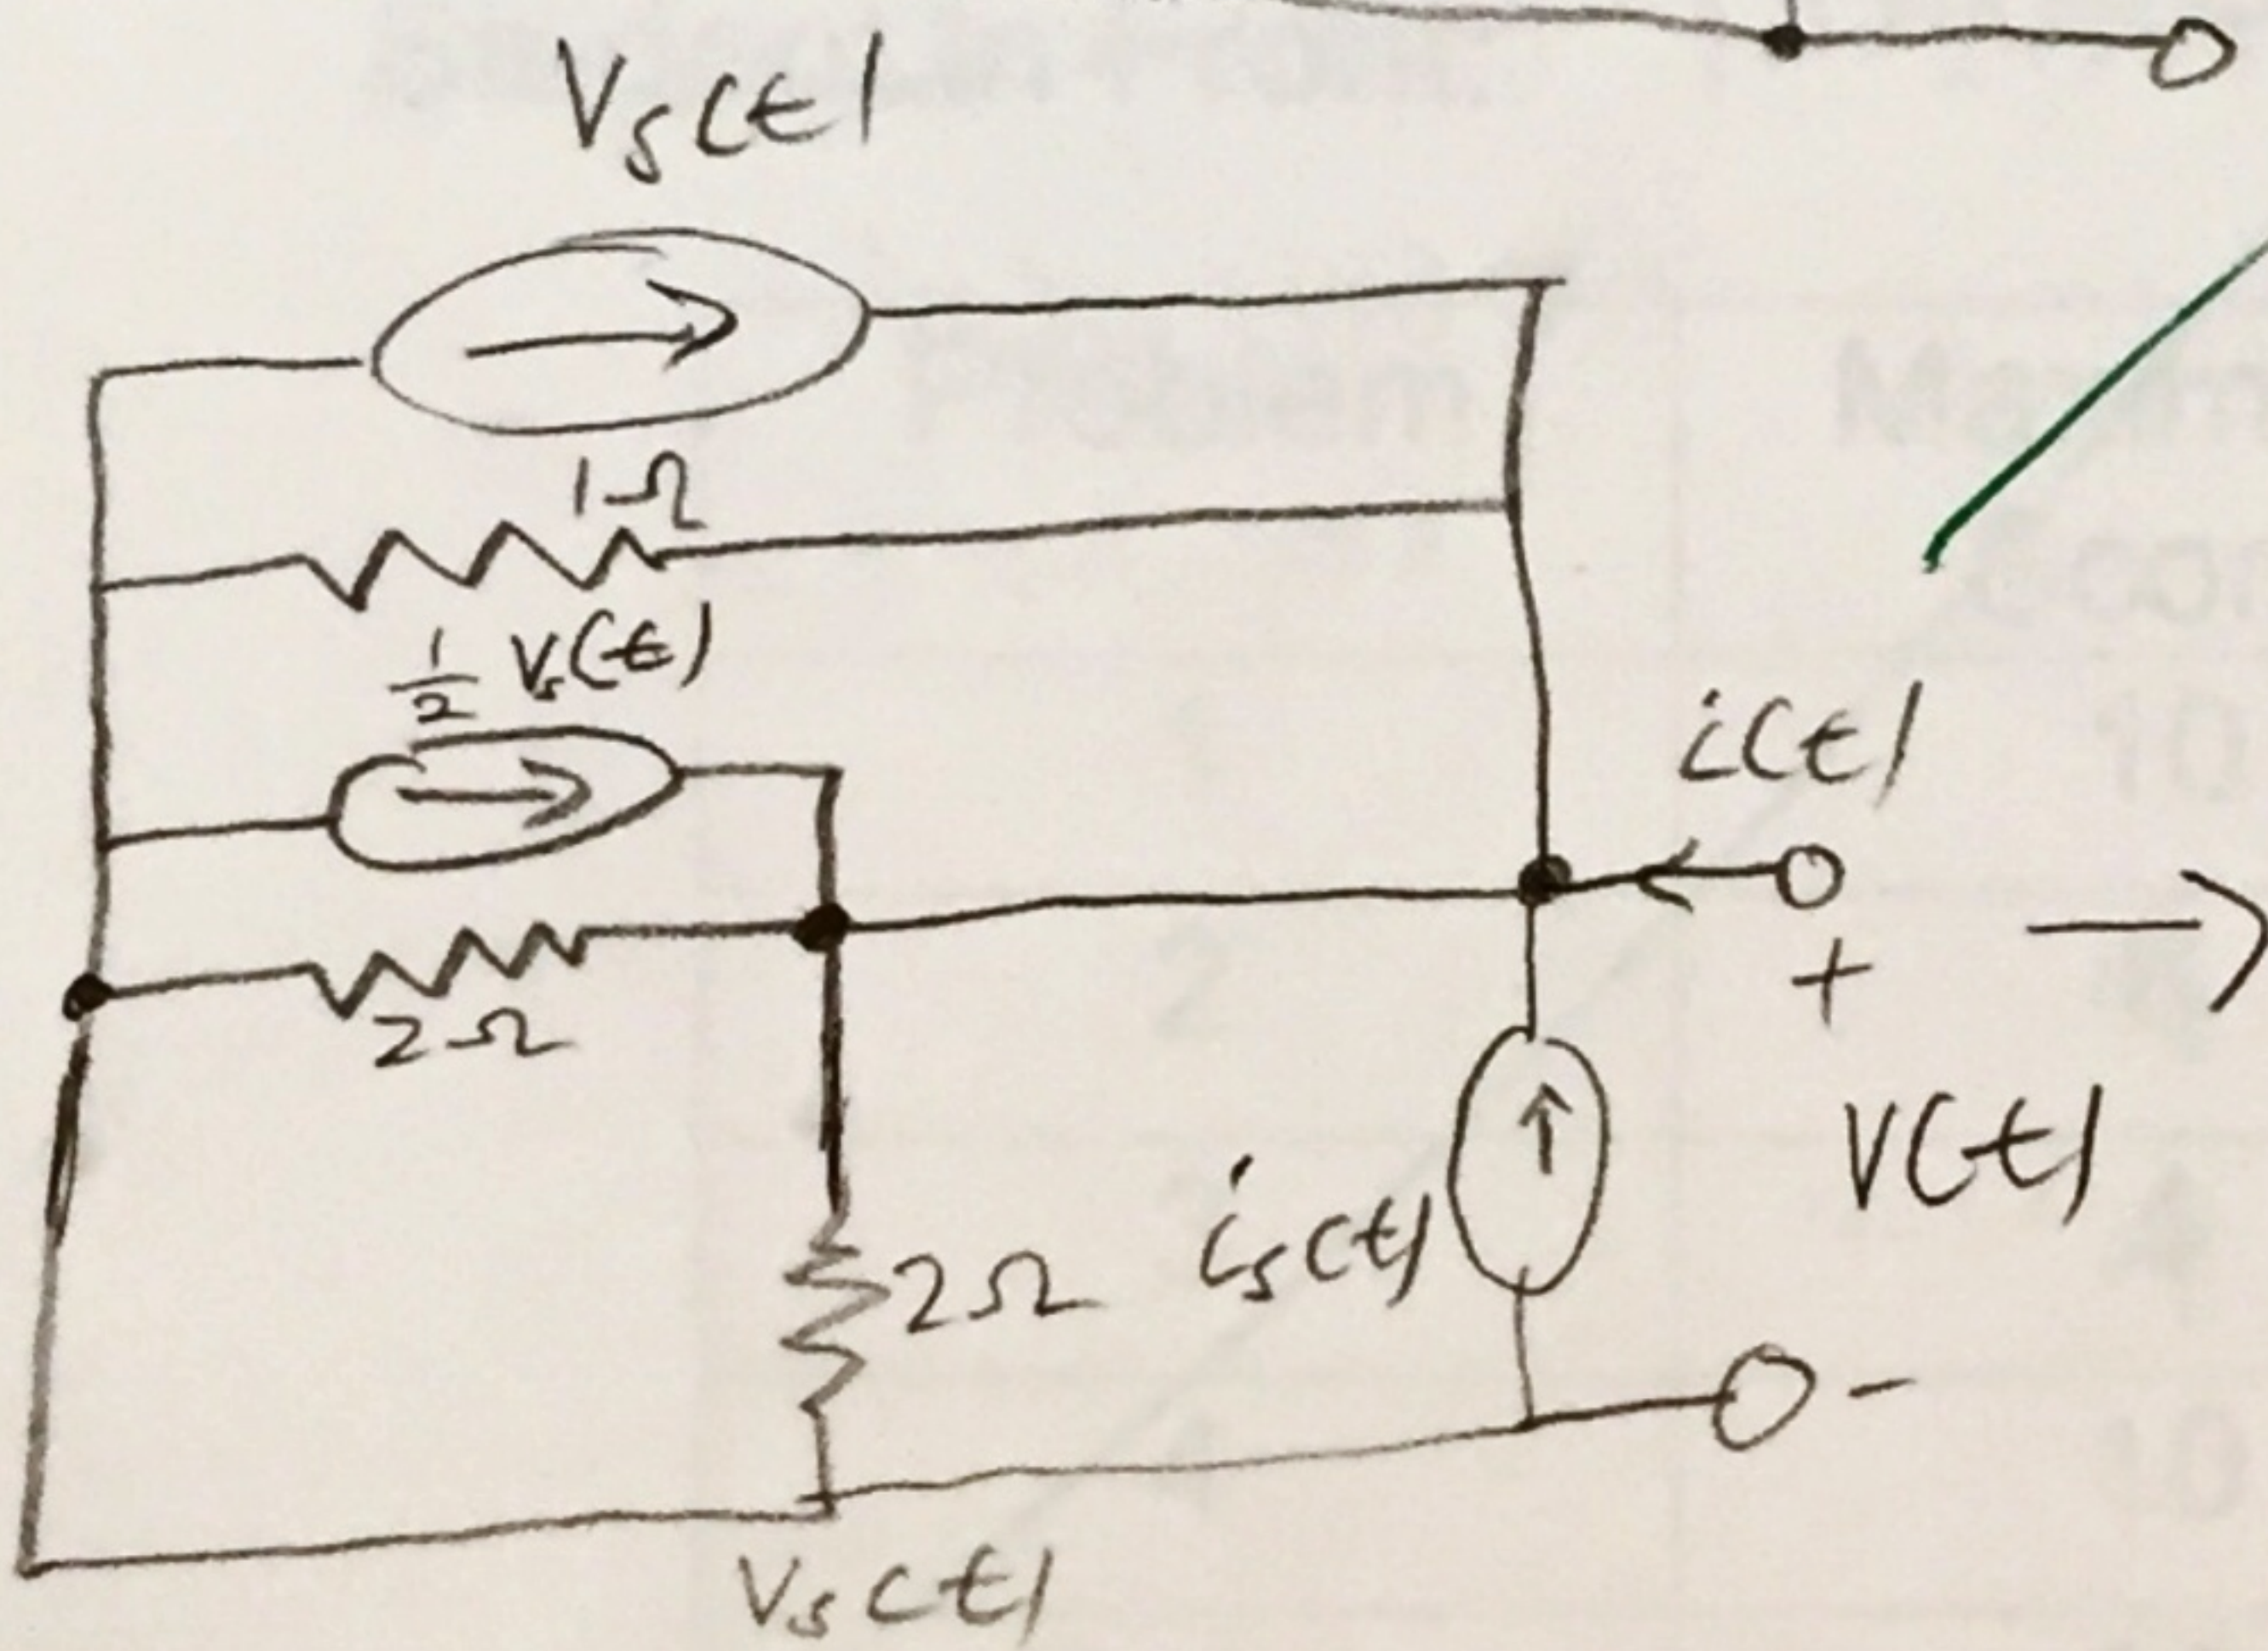 Vs(t)
1Ω
1/2 Vs(t)
i(t)
2Ω
+
V(t)
is(t)
2Ω
-
Vs(t)